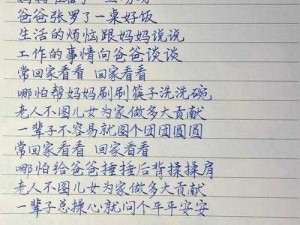 爸爸张罗了一桌好饭
生活的烦恼跟妈妈说说
工作的事情向爸爸谈谈
常回家看看 回家看看
哪怕帮妈妈刷刷筷子洗洗碗
老人不图儿女为家做多大贡献
一辈子不容易就图个团团圆圆
常回家看看 回家看看
哪怕给爸爸捶捶后背揉揉肩
老人不图儿女为家做多大贡献
一辈子总操心就问个平平安安